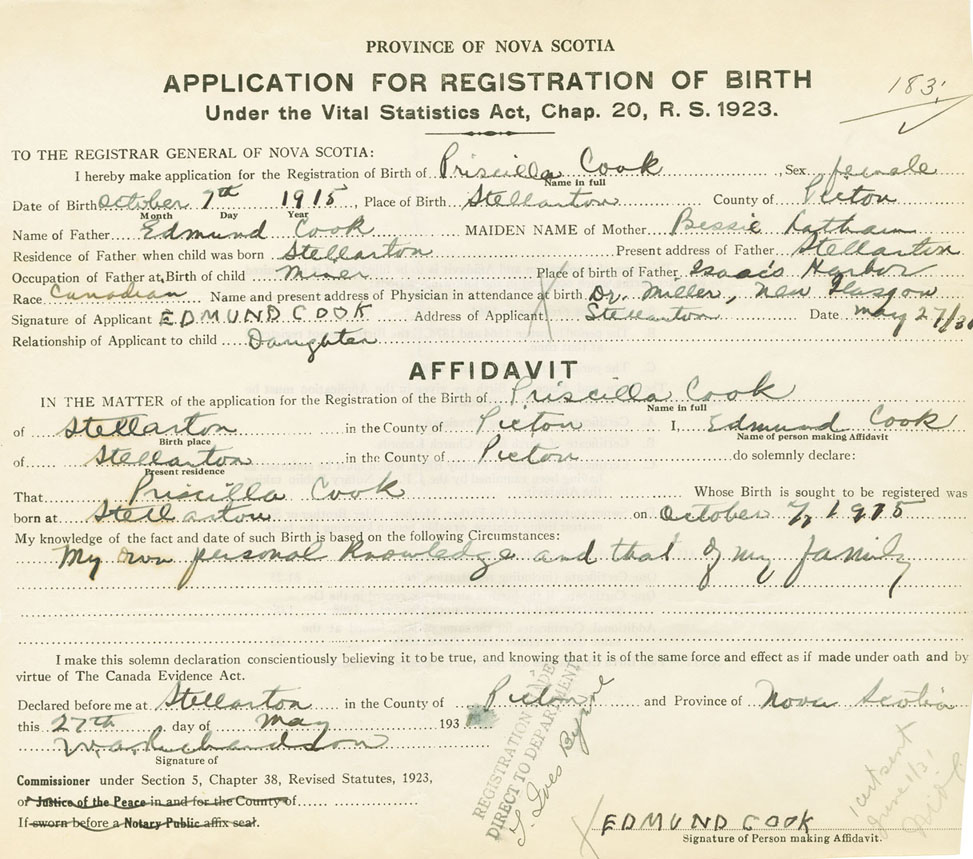 PROVINCE OF NOVA SCOTIA
APPLICATION FOR REGISTRATION OF BIRTH
183.
Under the Vital Statistics Act, Chap. 20, R. S. 1923.
TO THE REGISTRAR GENERAL OF NOVA SCOTIA:
I hereby make application for the Registration of Birth of Priscilla Cook, Sex female
Name in full
Date of Birth October 7th 1915, Place of Birth Stellarton County of Picton
Month Day Year
Name of Father Edmund Cook MAIDEN NAME of Mother Bessie Latham
Residence of Father when child was born Stellarton Present address of Father Stellarton
Occupation of Father at Birth of child Miner Place of birth of Father Isaac's Harbor
Race Canadian Name and present address of Physician in attendance at birth Dr. Miller, New Glasgow
Signature of Applicant EDMUND COOK Address of Applicant Stellarton Date May 27/
Relationship of Applicant to child Daughter
AFFIDAVIT
IN THE MATTER of the application for the Registration of the Birth of Priscilla Cook
Name in full
of Stellarton in the County of Picton I, Edmund Cook
Birth place Name of person making Affidavit
of Stellarton in the County of Picton do solemnly declare:
Present residence
That Priscilla Cook Whose Birth is sought to be registered was
born at Stellarton on October 7, 1915
My knowledge of the fact and date of such Birth is based on the following Circumstances:
My own personal knowledge and that of my family
I make this solemn declaration conscientiously believing it to be true, and knowing that it is of the same force and effect as if made under oath and by
virtue of The Canada Evidence Act.
Declared before me at Stellarton in the County of Picton and Province of Nova Scotia
this 27th day of May 193
W. A. Richardson
Signature of
Commissioner under Section 5, Chapter 38, Revised Statutes, 1923,
or Justice of the Peace in and for the County of
If sworn before a Notary Public affix seal.
REGISTRATION MADE
DIRECT TO DEPARTMENT
EDMUND COOK
Signature of Person making Affidavit.
1 cert sent
June 1/31